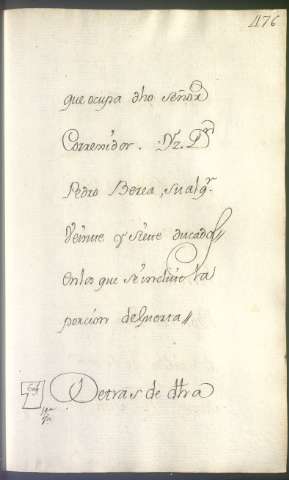 1176
que ocupa dho señor
Corremidor.
Pedro Berea, su alqr.
Veinue y sieue ducados
en los que se incluie la
porcion de Puerta
Detras de dha